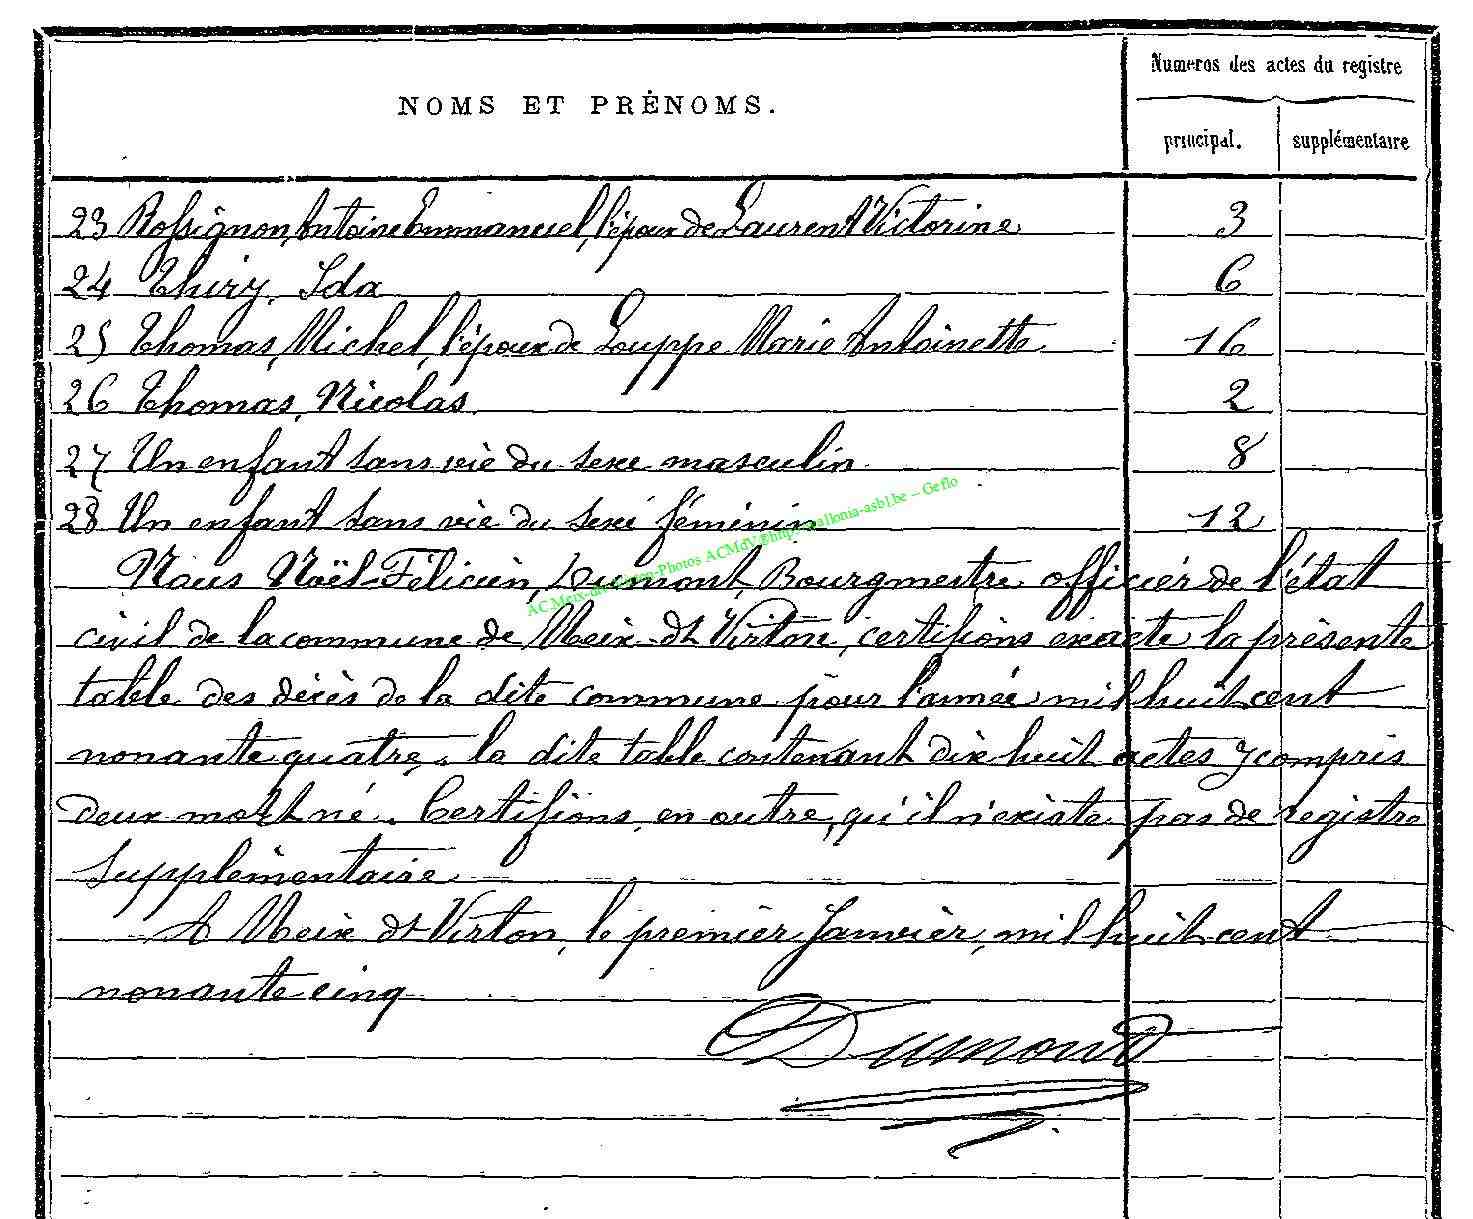 NOMS ET PRÉNOMS.
Numeros des actes du registre
principal. supplémentaire
23 Rossignon, Antoine Emmanuel, l'époux de Laurent Victorine 3
24 Thiry, Ida 6
25 Thomas, Michel, l'époux de Louppe Marie Antoinette 16
26 Thomas, Nicolas 2
27 Un enfant sans vie du sexe masculin 8
28 Un enfant sans vie du sexe féminin 12
Nous Noël-Félicien, Dumont, Bourgmestre officier de l'état
civil de la commune de Meix-dt Virton, certifions exacte la présente
table des décès de la dite commune pour l'année mil huit cent
nonante quatre. la dite table contenant dix huit actes y compris
deux mort né. Certifions, en outre, qu'il n'existe pas de registre
supplémentaire
A Meix dt Virton, le premier Janvier, mil huit cent
nonante cinq
Dumont
ACMeix-dt-Virton-Photos ACMdV ©http://wallonia-asbl.be – Geflo